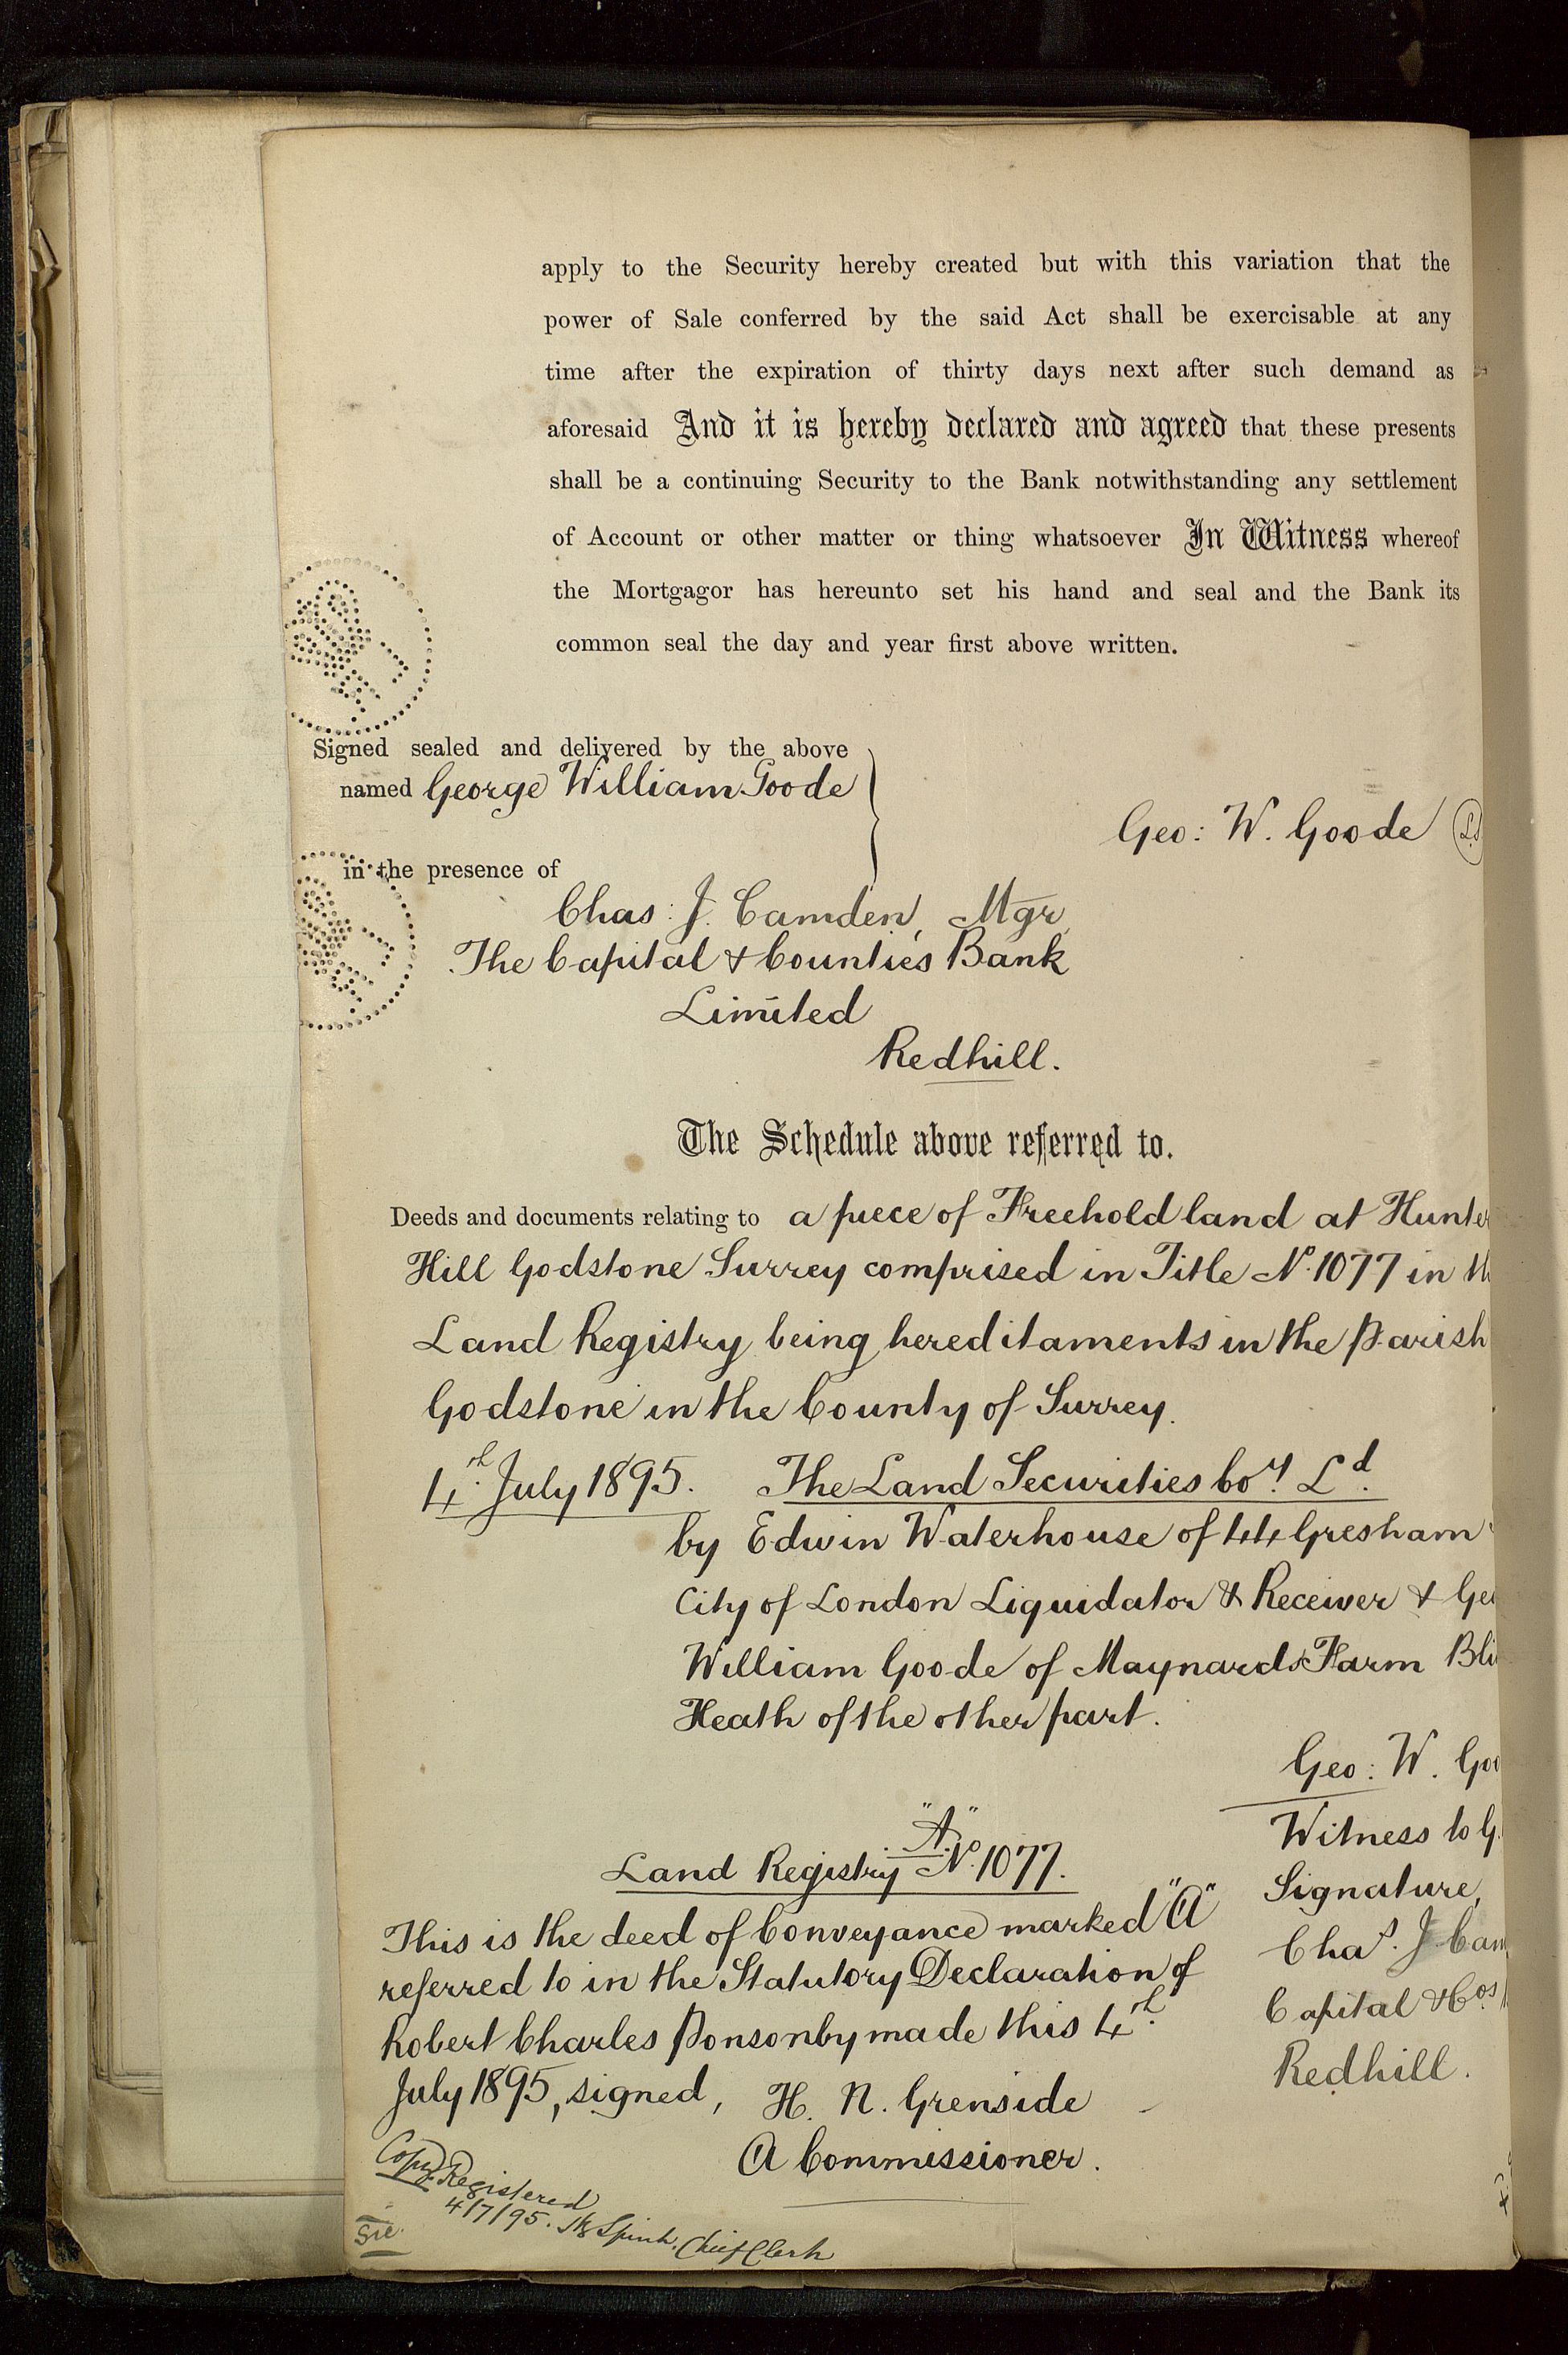 apply to the Security hereby created but with this variation that the
power of Sale conferred by the said Act shall be exercisable at any
time after the expiration of thirty days next after such demand as
aforesaid And it is hereby declared and agreed that these presents
shall be a continuing Security to the Bank notwithstanding any settlement
of Account or other matter or thing whatsoever In Witness whereof
the Mortgagor has hereunto set his hand and seal and the Bank its
common seal the day and year first above written.
Signed sealed and delivered by the above
named George William Goode
Geo: W. Goode LS
in the presence of
Chas: J. Camden, Mgr,
The Capital & Counties Bank
Limited
Redhill.
The Schedule above referred to.
Deeds and documents relating to a piece of Freehold land at Hunte
Hill Godstone Surrey comprised in Title No. 1077 in th
Land Registry being hereditaments in the Parish
Godstone in the County of Surrey.
4th. July 1895. The Land Securities Coy. Ld.
by Edwin Waterhouse of 44 Gresham
City of London Liquidator & Receiver & Ge
William Goode of Maynards Farm Bli
Heath of the other part.
Geo: W. Goo
Witness to G.
Signature,
Chas. J. Cam
Capital & Cos
Redhill.
"A".
Land Registry No. 1077.
This is the deed of Conveyance marked "A"
referred to in the Statutory Declaration of
Robert Charles Ponsonby made this 4th.
July 1895, signed, H. N. Grenside
A Commissioner.
Copy Registered
4/7/95. Spink, Chief Clerk